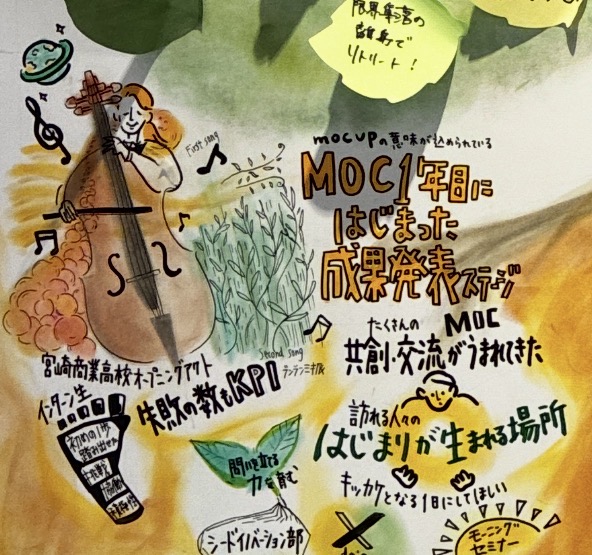 限界集落の
離島で
リトリート!
mocupの意味が込められている
First song
MOC1年目に
はじまった
成果発表ステージ
たくさんの MOC
共創・交流がうまれてきた
Second song
宮崎商業高校オープニングアクト
失敗の数もKPI
インターン生
初めの1歩
踏み出せた
訪れる人々の
はじまりが生まれる場所
問いを立てる
力を育む
キッカケとなる1日にしてほしい
シードイノベーション部
モーニング
セミナー